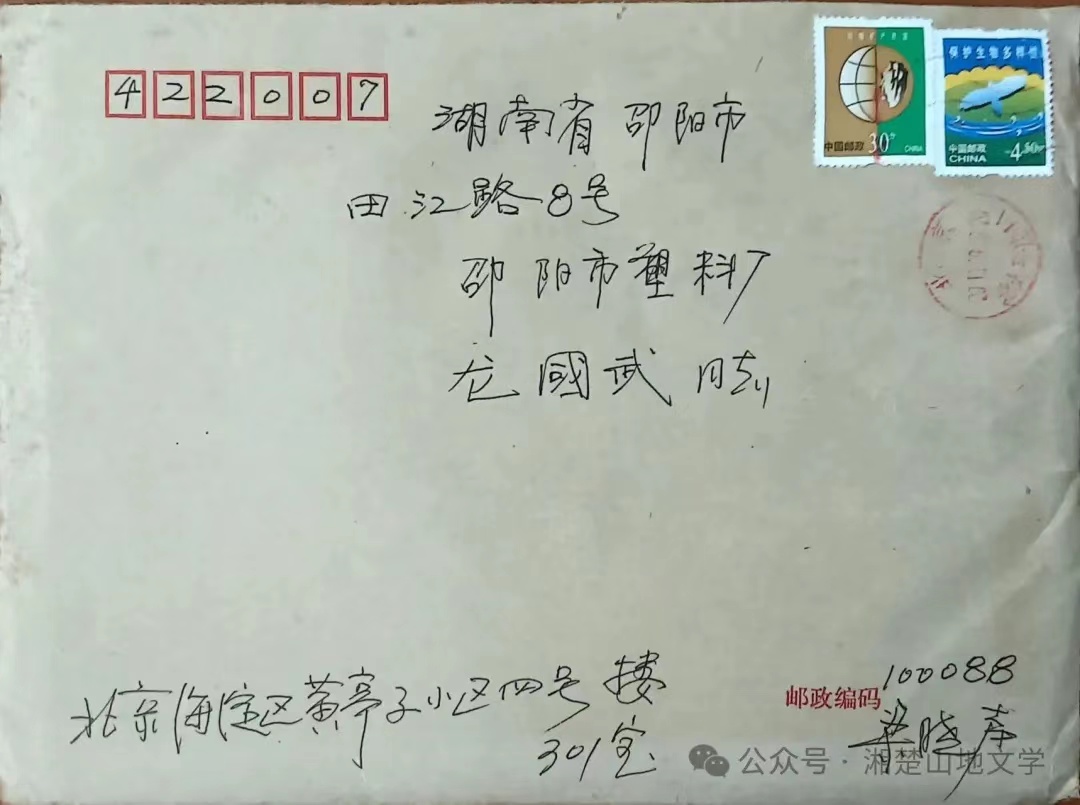 422007
湖南省邵阳市
田江路8号
邵阳市塑料厂
龙國武同志
保护生物多样性
中国邮政 30分 CHINA
中国邮政
CHINA
4.50元
北京海淀区黄亭子小区四号楼
301室
邮政编码 100088
梁晓声
公众号·湘楚山地文学